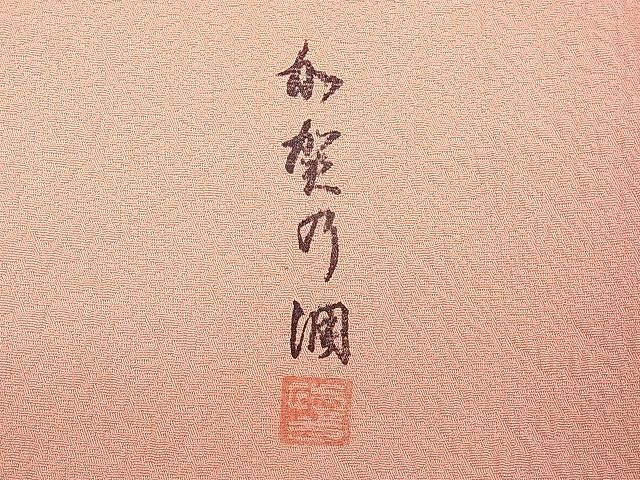 加賀乃潤